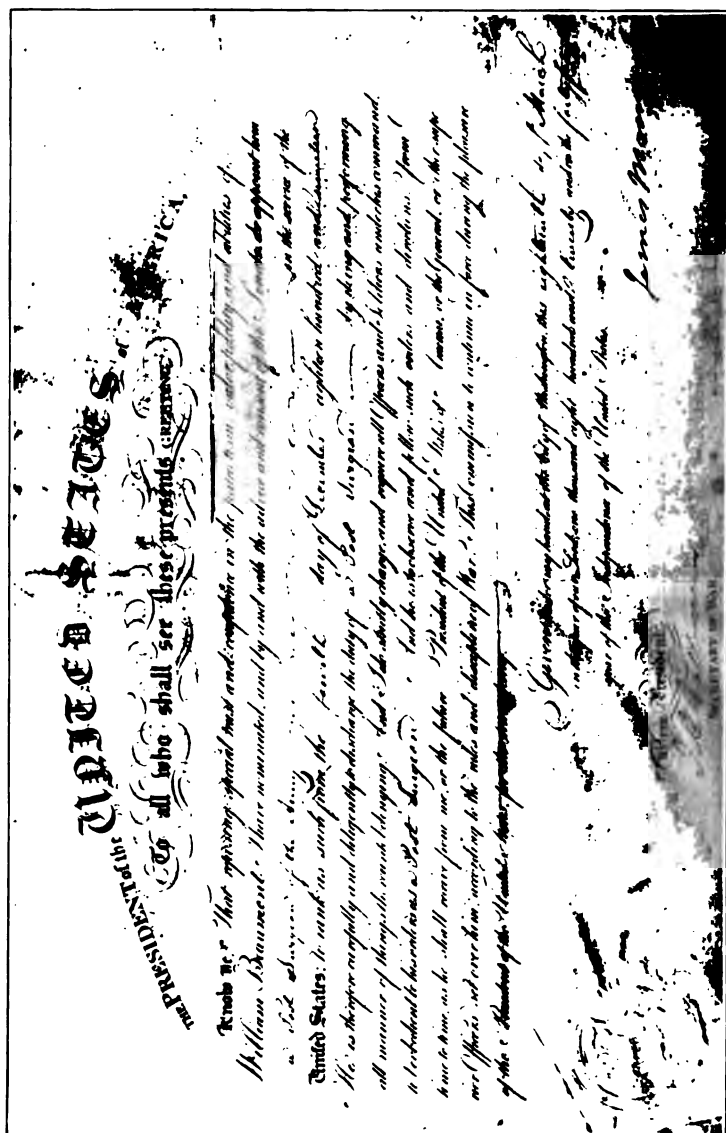 THE PRESIDENT of the UNITED STATES of AMERICA,
To all who shall see these presents GREETING:
Know ye, That reposing special trust and confidence in the patriotism, valor, fidelity, and abilities of
William Beaumont I have nominated, and by and with the advice and consent of the Senate do appoint him
a Post Surgeon of the Army in the service of the
United States: to rank as such from the fourth day of December eighteen hundred and nineteen
He is therefore carefully and diligently to discharge the duty of a Post Surgeon by doing and performing
all manner of things thereunto belonging. And I do strictly charge, and require all Officers and Soldiers under his command,
to be obedient to his orders as a Post Surgeon. And he is to observe and follow such orders, and directions, from
time to time, as he shall receive from me, or the future President of the United States of America, or the General, or other superior
Officers set over him, according to the rules and discipline of War. This commission to continue in force during the pleasure
of the President of the United States, for the time being.
Given under my hand at the City of Washington, this eighteenth day of March
in the year of our Lord, one thousand eight hundred and twenty and in the forty fourth
year of the Independence of the United States.
James Mon
By the President,
SECRETARY OF WAR